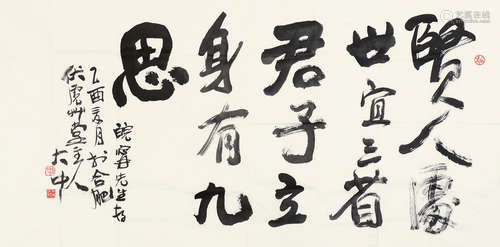 賢人處
世宜三省
君子立
身有九
思
皖寧先生哂
乙酉年月於合肥
伏聖草堂主人
大中